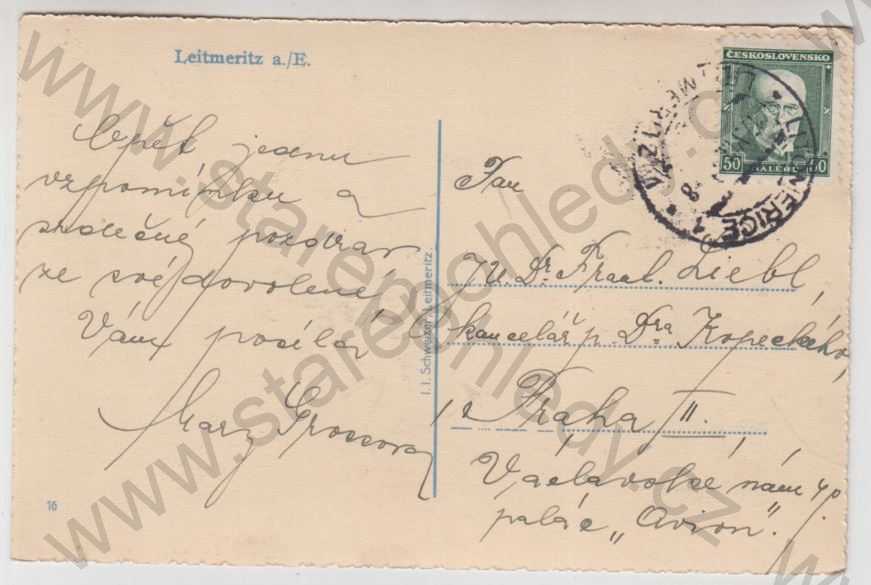 Leitmeritz a./E.
Opět jednu
vzpomínku a
srdečné pozdrav
ze své dovolené
Vám posílá
Mary Grossová
16
I. I. Schweitzer, Leitmeritz.
ČESKOSLOVENSKO
50 50
HALÉŘŮ
LITOMĚŘICE 1
Pan
JU. Dr. Karel Liebl,
kancelář p. Dra Kopeckého,
Praha II.
Václavské nám 40
palác „Avion".
www.starepohledy.cz
www.starepohledy.cz